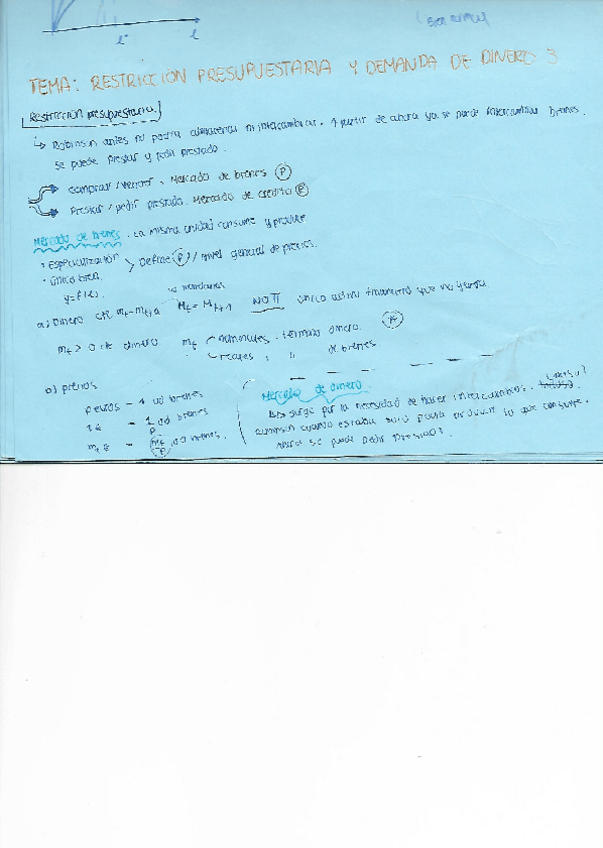 Bien normal
l* l
TEMA: RESTRICCIÓN PRESUPUESTARIA Y DEMANDA DE DINERO 3
Restricción presupuestaria
↳ Robinson antes no podía almacenar ni intercambiar. A partir de ahora ya se puede intercambiar bienes.
Se puede prestar y pedir prestado.
Comprar / vender. Mercado de bienes (P)
Prestar / pedir prestado. Mercado de crédito (R)
Mercado de bienes. La misma unidad consume y produce
· Especialización
· único bien. Define (P) / nivel general de precios.
y = f(l)
a) Dinero cte
NO π único activo financiero que no genera
mt > 0 cte dinero mt nominales. término dinero.
reales, " de bienes
b) precios
p euros – 1 ud bienes
1€ – 1/P ud bienes
mt € = mt/P ud bienes.
Mercado de dinero
Esto surge por la necesidad de hacer intercambios.
cuando estaba solo podía producir lo que consume.
ahora se puede pedir prestado.